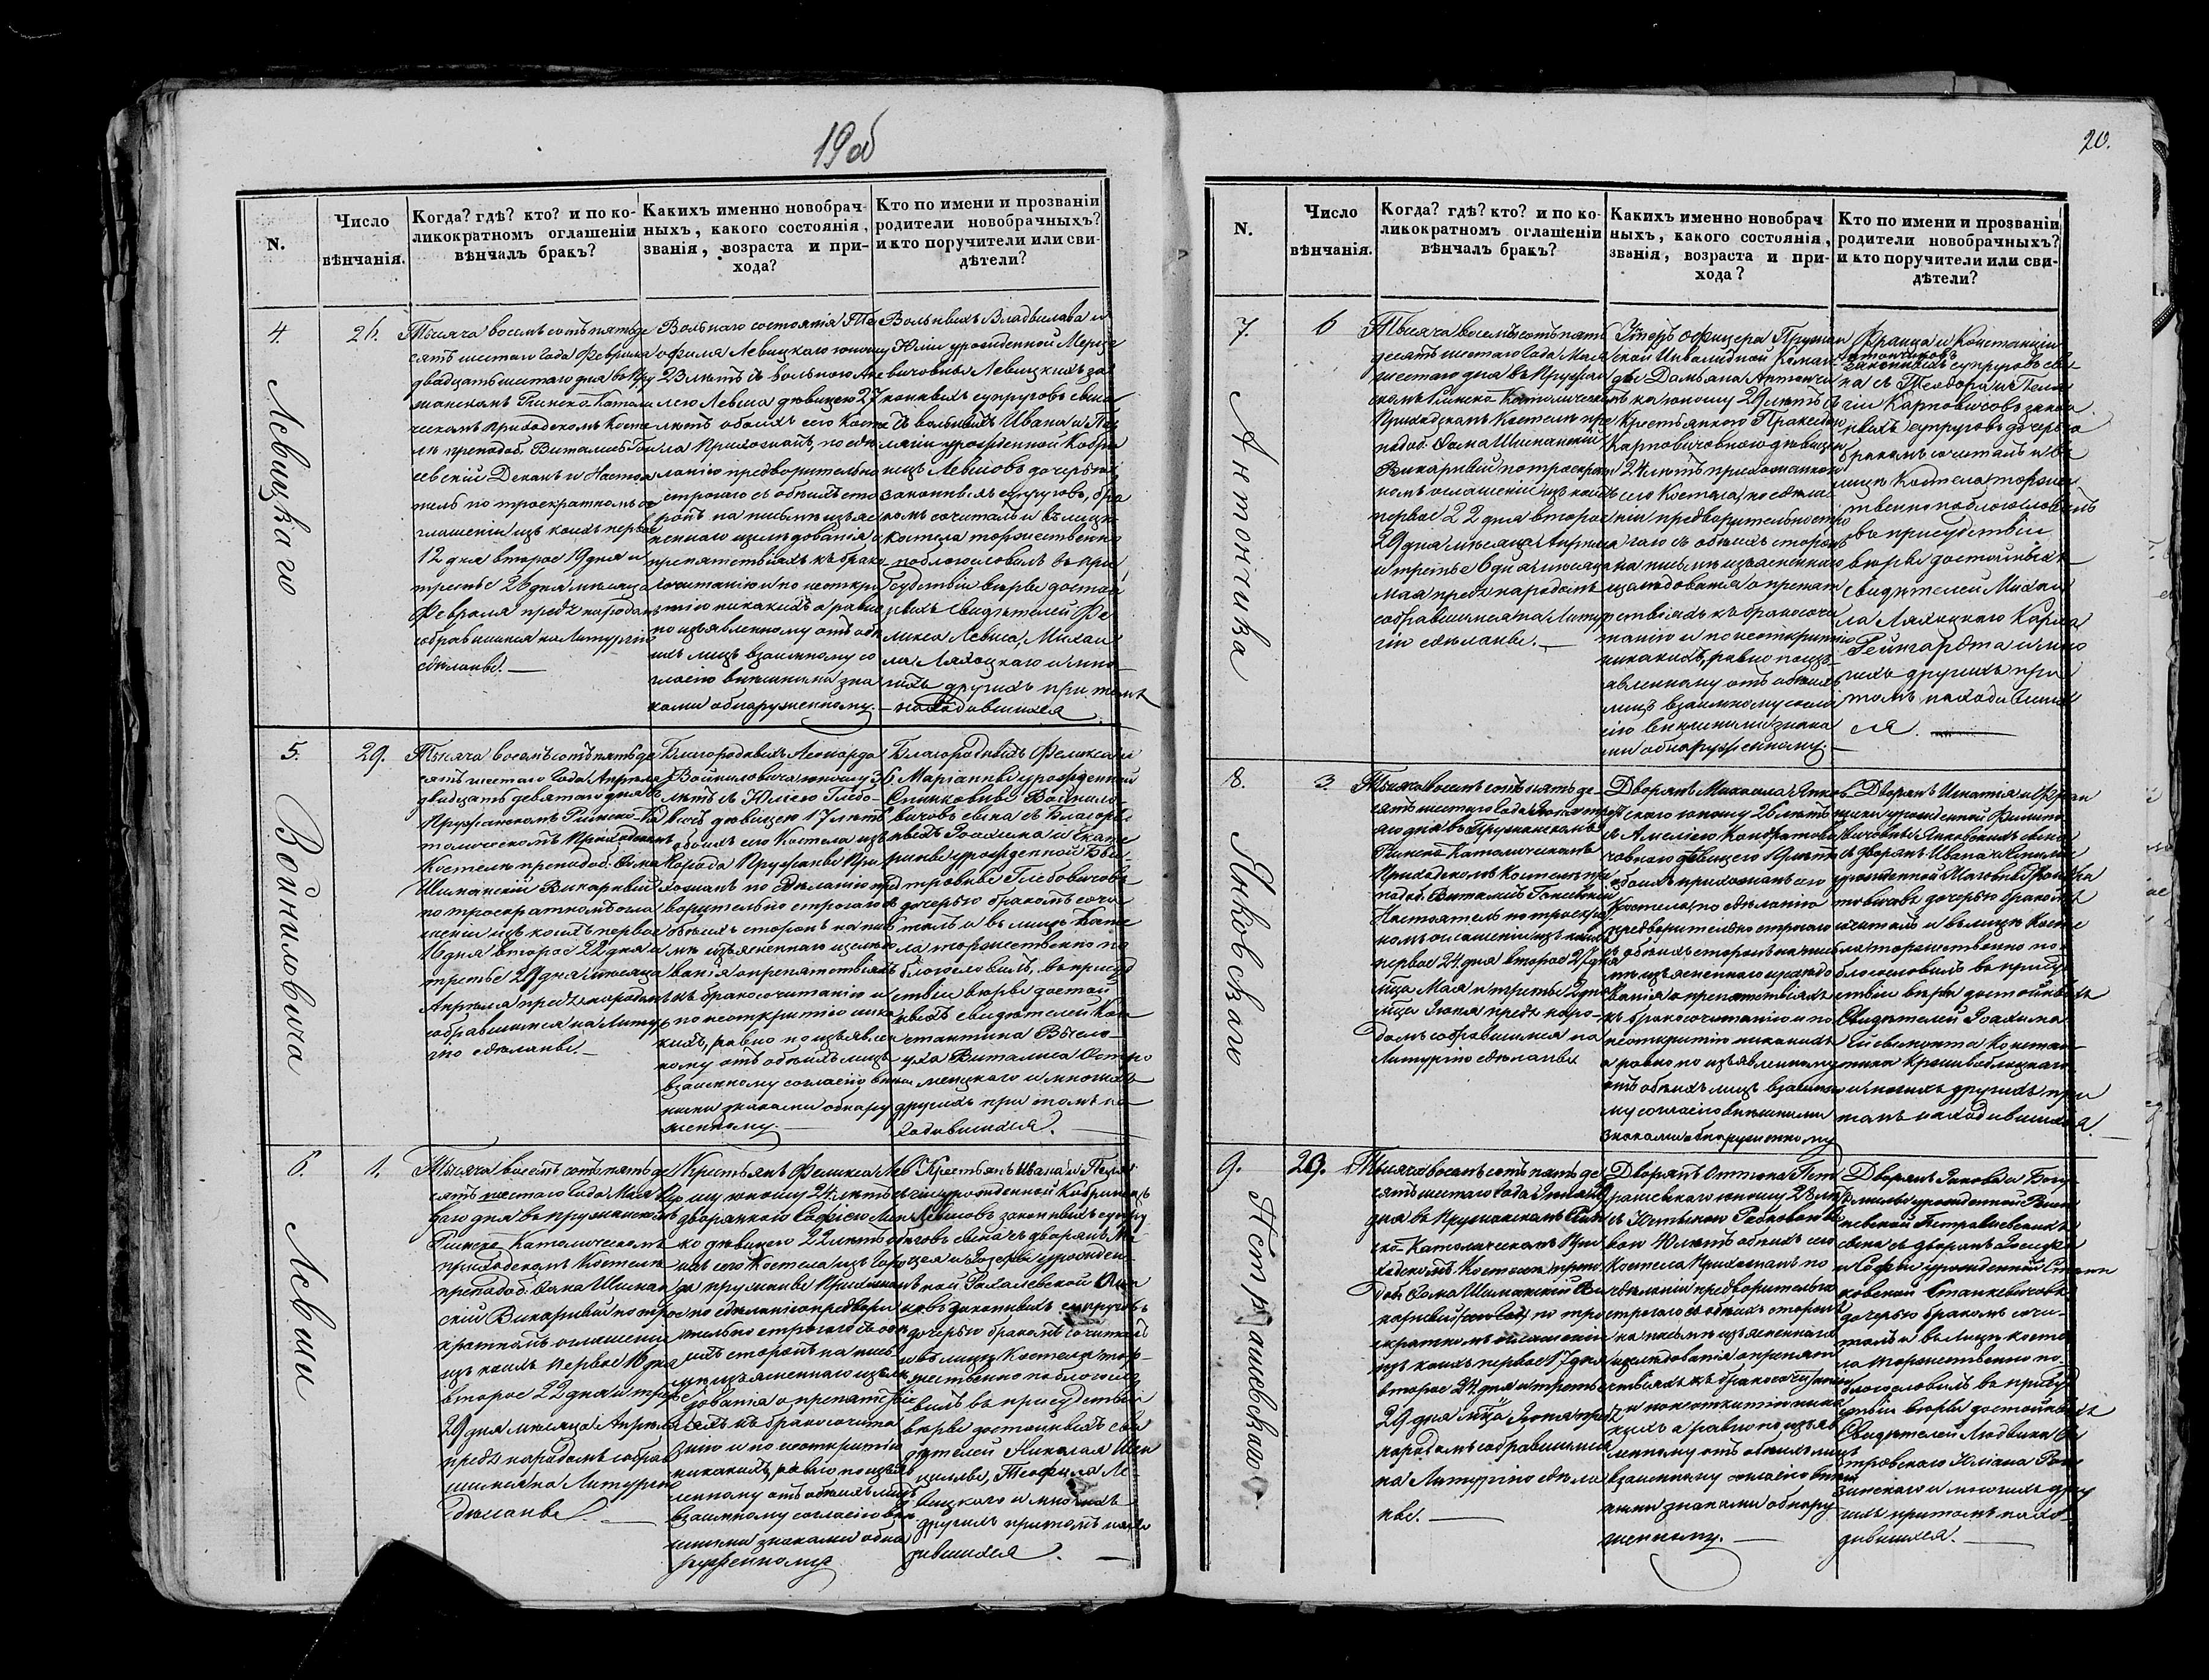 19об
N.
Число
вѣнчанія.
Когда? гдѣ? кто? и по ко-
ликократномъ оглашеніи
вѣнчалъ бракъ?
Какихъ именно новобрач-
ныхъ, какого состоянія,
званія, возраста и при-
хода?
Кто по имени и прозваніи
родители новобрачныхъ?
и кто поручители или сви-
дѣтели?
4.
Левицкаго
26.
Тысяча восемьсотъ пятьде
сятъ шестаго года Февраля
двадцать шестаго дня въ Пру
жанскомъ Римско-Католи
ческомъ Приходскомъ Косте
лѣ препод. Виталисъ
Деканъ и Настоя
тель по троекратномъ о
глашеніи изъ коихъ первое
12 дня второе 19 дня и
третье 26 дня мѣсяца
Февраля предъ народомъ
собравшимся на Литургію
сдѣланы.
Вольнаго состоянія Те
офиля Левицкаго юношу
23 лѣтъ съ вольною
Левша дѣвицею 27
лѣтъ обоихъ сего Косте
ла Прихожанъ, по сдѣ
ланію предворительно
строгаго съ обѣихъ сто
ронъ на письмѣ изъяс
неннаго изслѣдованія о
препятствіяхъ къ брако
сочитанію и по неоткры
тію никакихъ а равно
по изъявленному отъ обѣ
ихъ лицъ взаимному со
гласію внѣшними зна
ками обнаруженному.
Вольныхъ Владислава и
Юліи урожденной
Левицкихъ за
конныхъ супруговъ сына
съ вольныхъ Ивана и Пе
лагіи урожденной Кобри
нецъ Левшовъ дочерью
законныхъ супруговъ, бра
комъ сочиталъ и въ лицѣ
костела торжественно
поблогословилъ въ при
сутствіи вѣры достой
ныхъ Свидѣтелей Фе
ликса Левша, Михаи
ла Ляхоцкаго и мно
гихъ другихъ при томъ
находившихся
5.
Войниловича
29.
Тысяча восемьсотъ пятьде
сятъ шестаго года Апрѣля
двадцать девятаго дня въ
Пружанскомъ Римско-Ка
толическомъ Приходскомъ
Костелѣ препод. Фома
Шиманскій Викарный
по троекратномъ огла
шеніи изъ коихъ первое
16 дня второе 22 дня и
третье 29 дня мѣсяца
Апрѣля предъ народомъ
собравшимся на Литур
гію сдѣланы.
Благородныхъ Леонарда
Войниловича юношу 36
лѣтъ съ Юліею Глѣбо
вичъ дѣвицею 17 лѣтъ
обоихъ сего Костела изъ
города Пружаны При
хожанъ по сдѣланію пред
ворительно строгаго съ
обѣихъ сторонъ на пис
мѣ изъясненнаго изслѣдо
ванія о препятствіяхъ
къ бракосочитанію и
по неоткрытію ника
кихъ, равно по изъявлен
ному отъ обѣихъ лицъ
взаимному согласію внѣш
ними знаками обнару
женному.
Благородныхъ Феликса и
Маріанны урожденной
Войнило
вичовъ сына съ Благород
ныхъ Іоахима и Екате
рины урожденной
Глѣбовичовъ
дочерью бракомъ сочи
талъ и въ лицѣ Косте
ла торжественно по
блогословилъ, въ присут
ствіи вѣры достой
ныхъ свидѣтелей Кон
стантина
Виталиса Остро
менцкаго и многихъ
другихъ при томъ на
ходившихся.
6.
Левши
1.
Тысяча восемьсотъ пятьде
сятъ шестаго года Мая пер
ваго дня въ Пружанскомъ
Римско Католическомъ
приходскомъ Костелѣ
препод. Фома Шиман
скій Викарный по трое
кратномъ оглашеніи
изъ коихъ первое 16 дня
второе 22 дня и третье
29 дня мѣсяца Апрѣля
предъ народомъ собрав
шимся на Литургію
сдѣланы.
Крестьянъ Феликса Лев
шу юношу 24 лѣтъ съ
дворянкою Софіею
дѣвицею 22 лѣтъ обо
ихъ сего Костела изъ горо
да Пружаны Прихожанъ
по сдѣланію предвори
тельно строгаго съ обѣ
ихъ сторонъ на пись
мѣ изъясненнаго изслѣ
дованія о препятстві
яхъ къ бракосочита
нію и по неоткрытію
никакихъ, равно по изъяв
ленному отъ обѣихъ лицъ
взаимному согласію внѣ
шними знаками обна
руженному
Крестьянъ Ивана и Пела
гіи урожденной Кобринецъ
Левшовъ законныхъ супру
говъ сына съ дворянъ
урожден
ной
законныхъ супруговъ
дочерью бракомъ сочиталъ
и въ лицѣ Костела тор
жественно поблогосло
вилъ въ присутствіи
вѣры достойныхъ сви
дѣтелей Николая
Теофила Ле
вицкаго и многихъ
другихъ при томъ нахо
дившихся.
20.
N.
Число
вѣнчанія.
Когда? гдѣ? кто? и по ко-
ликократномъ оглашеніи
вѣнчалъ бракъ?
Какихъ именно новобрач
ныхъ, какого состоянія,
званія, возраста и при-
хода?
Кто по имени и прозваніи
родители новобрачныхъ?
и кто поручители или сви-
дѣтели?
7.
Антончика
6
Тысяча восемьсотъ пять
десятъ шестаго года Мая
шестаго дня въ Пружан
скомъ Римско-Католическомъ
Приходскомъ Костелѣ пре
подоб. Фома Шиманскій
Викарный по троекрат
номъ оглашеніи изъ коихъ
первое 22 дня второе
29 дня мѣсяца Апрѣля
и третье 6 дня мѣсяца
мая предъ народомъ
собравшимся на Литур
гію сдѣланы.
Унтеръ офицера Пружан
ской Инвалидной Коман
ды Дамьяна Антончи
ка юношу 29 лѣтъ съ
Крестьянкою Праксею
Карповичовною дѣвицею
24 лѣтъ прихожанкою
сего Костела, по сдѣла
ніи предворительно стро
гаго съ обѣихъ сторонъ
на письмѣ изъясненнаго
изслѣдованія о препят
ствіяхъ къ бракосочи
танію и по неоткрытію
никакихъ, равно по изъ
явленному отъ обѣихъ
лицъ взаимному согла
сію внѣшними знака
ми обнаруженному.
Франца и Констанціи
Антончиковъ
законныхъ супруговъ сы
на съ Теодора и Пела
гіи Карповичовъ закон
ныхъ супруговъ дочерью
бракомъ сочиталъ и въ
лицѣ Костела торжес
твенно поблогословилъ
въ присутствіи
вѣры достойныхъ
Свидѣтелей Михаи
ла Ляхоцкаго Карла
Гейнгардта и мно
гихъ другихъ при
томъ находивших
ся.
8.
Янковскаго
3.
Тысяча восемьсотъ пятьде-
сятъ шестаго года Іюня
дня въ Пружанскомъ
Римско-Католическомъ
Приходскомъ Костелѣ пре
подоб. Виталисъ
Настоятель по троекрат
номъ оглашеніи изъ коихъ
первое 24 дня второе 27 дня
м-ца Мая и третье 2 дня
м-ца Іюня предъ наро-
домъ собравшимся на
Литургію сдѣланы
Дворянъ Михаила Янков
скаго юношу 26 лѣтъ
съ Амеліею Кондратови
човною дѣвицею лѣтъ
обоихъ прихожанъ сего
Костела, по сдѣланію
предворительно строгаго
съ обѣихъ сторонъ на пис
мѣ изъясненнаго изслѣдо
ванія о препятствіяхъ
къ бракосочитанію и по
неоткрытію никакихъ
а равно по изъявленному
отъ обѣихъ лицъ взаимно
му согласію внѣшними
знаками обнаруженному
Дворянъ Игнатія и Фран
цишки урожденной
Янковскихъ сына
съ дворянъ Ивана и
урожденной Кондра
товичовъ дочерью бракомъ
сочиталъ и въ лицѣ Косте
ла торжественно по-
блогословилъ въ присут
ствіи вѣры достойныхъ
Свидѣтелей Іоахима
Констан
тина Кршивоблоцкаго
и многихъ другихъ при
томъ находившихся.
9.
Петрашевскаго
29.
Тысяча восемьсотъ пятьде
сятъ шестаго года Іюня 29
дня въ Пружанскомъ Рим
ско-Католическомъ При
ходскомъ Костелѣ препо
доб. Фома Шиманскій Ви
карный по тро
екратномъ оглашеніи
изъ коихъ первое 17 дня
второе 24 дня и третье
29 дня м-ца Іюня предъ
народомъ собравшимся
на Литургію сдѣла
ны.
Дворянъ Антона Пет
рашевскаго юношу 28 лѣтъ
съ
40 лѣтъ обѣихъ сего
Костела Прихожанъ по
сдѣланіи предворительно
строгаго съ обѣихъ сторонъ
на письмѣ изъясненнаго
изслѣдованія о препят
ствіяхъ къ бракосочитанію
и по неоткрытію ника
кихъ а равно по изъяв
ленному отъ обѣихъ лицъ
взаимному согласію внѣш
ними знаками обнару
женному.
Дворянъ Якова и Бого
милы урожденной
Петрашевскихъ
сына съ дворянъ
и Софіи урожденной
Станкевичовъ
дочерью бракомъ сочи-
талъ и въ лицѣ косте
ла торжественно по-
блогословилъ въ присут
ствіи вѣры достойныхъ
Свидѣтелей Людвика
Юліана
и многихъ дру
гихъ при томъ нахо-
дившихся.